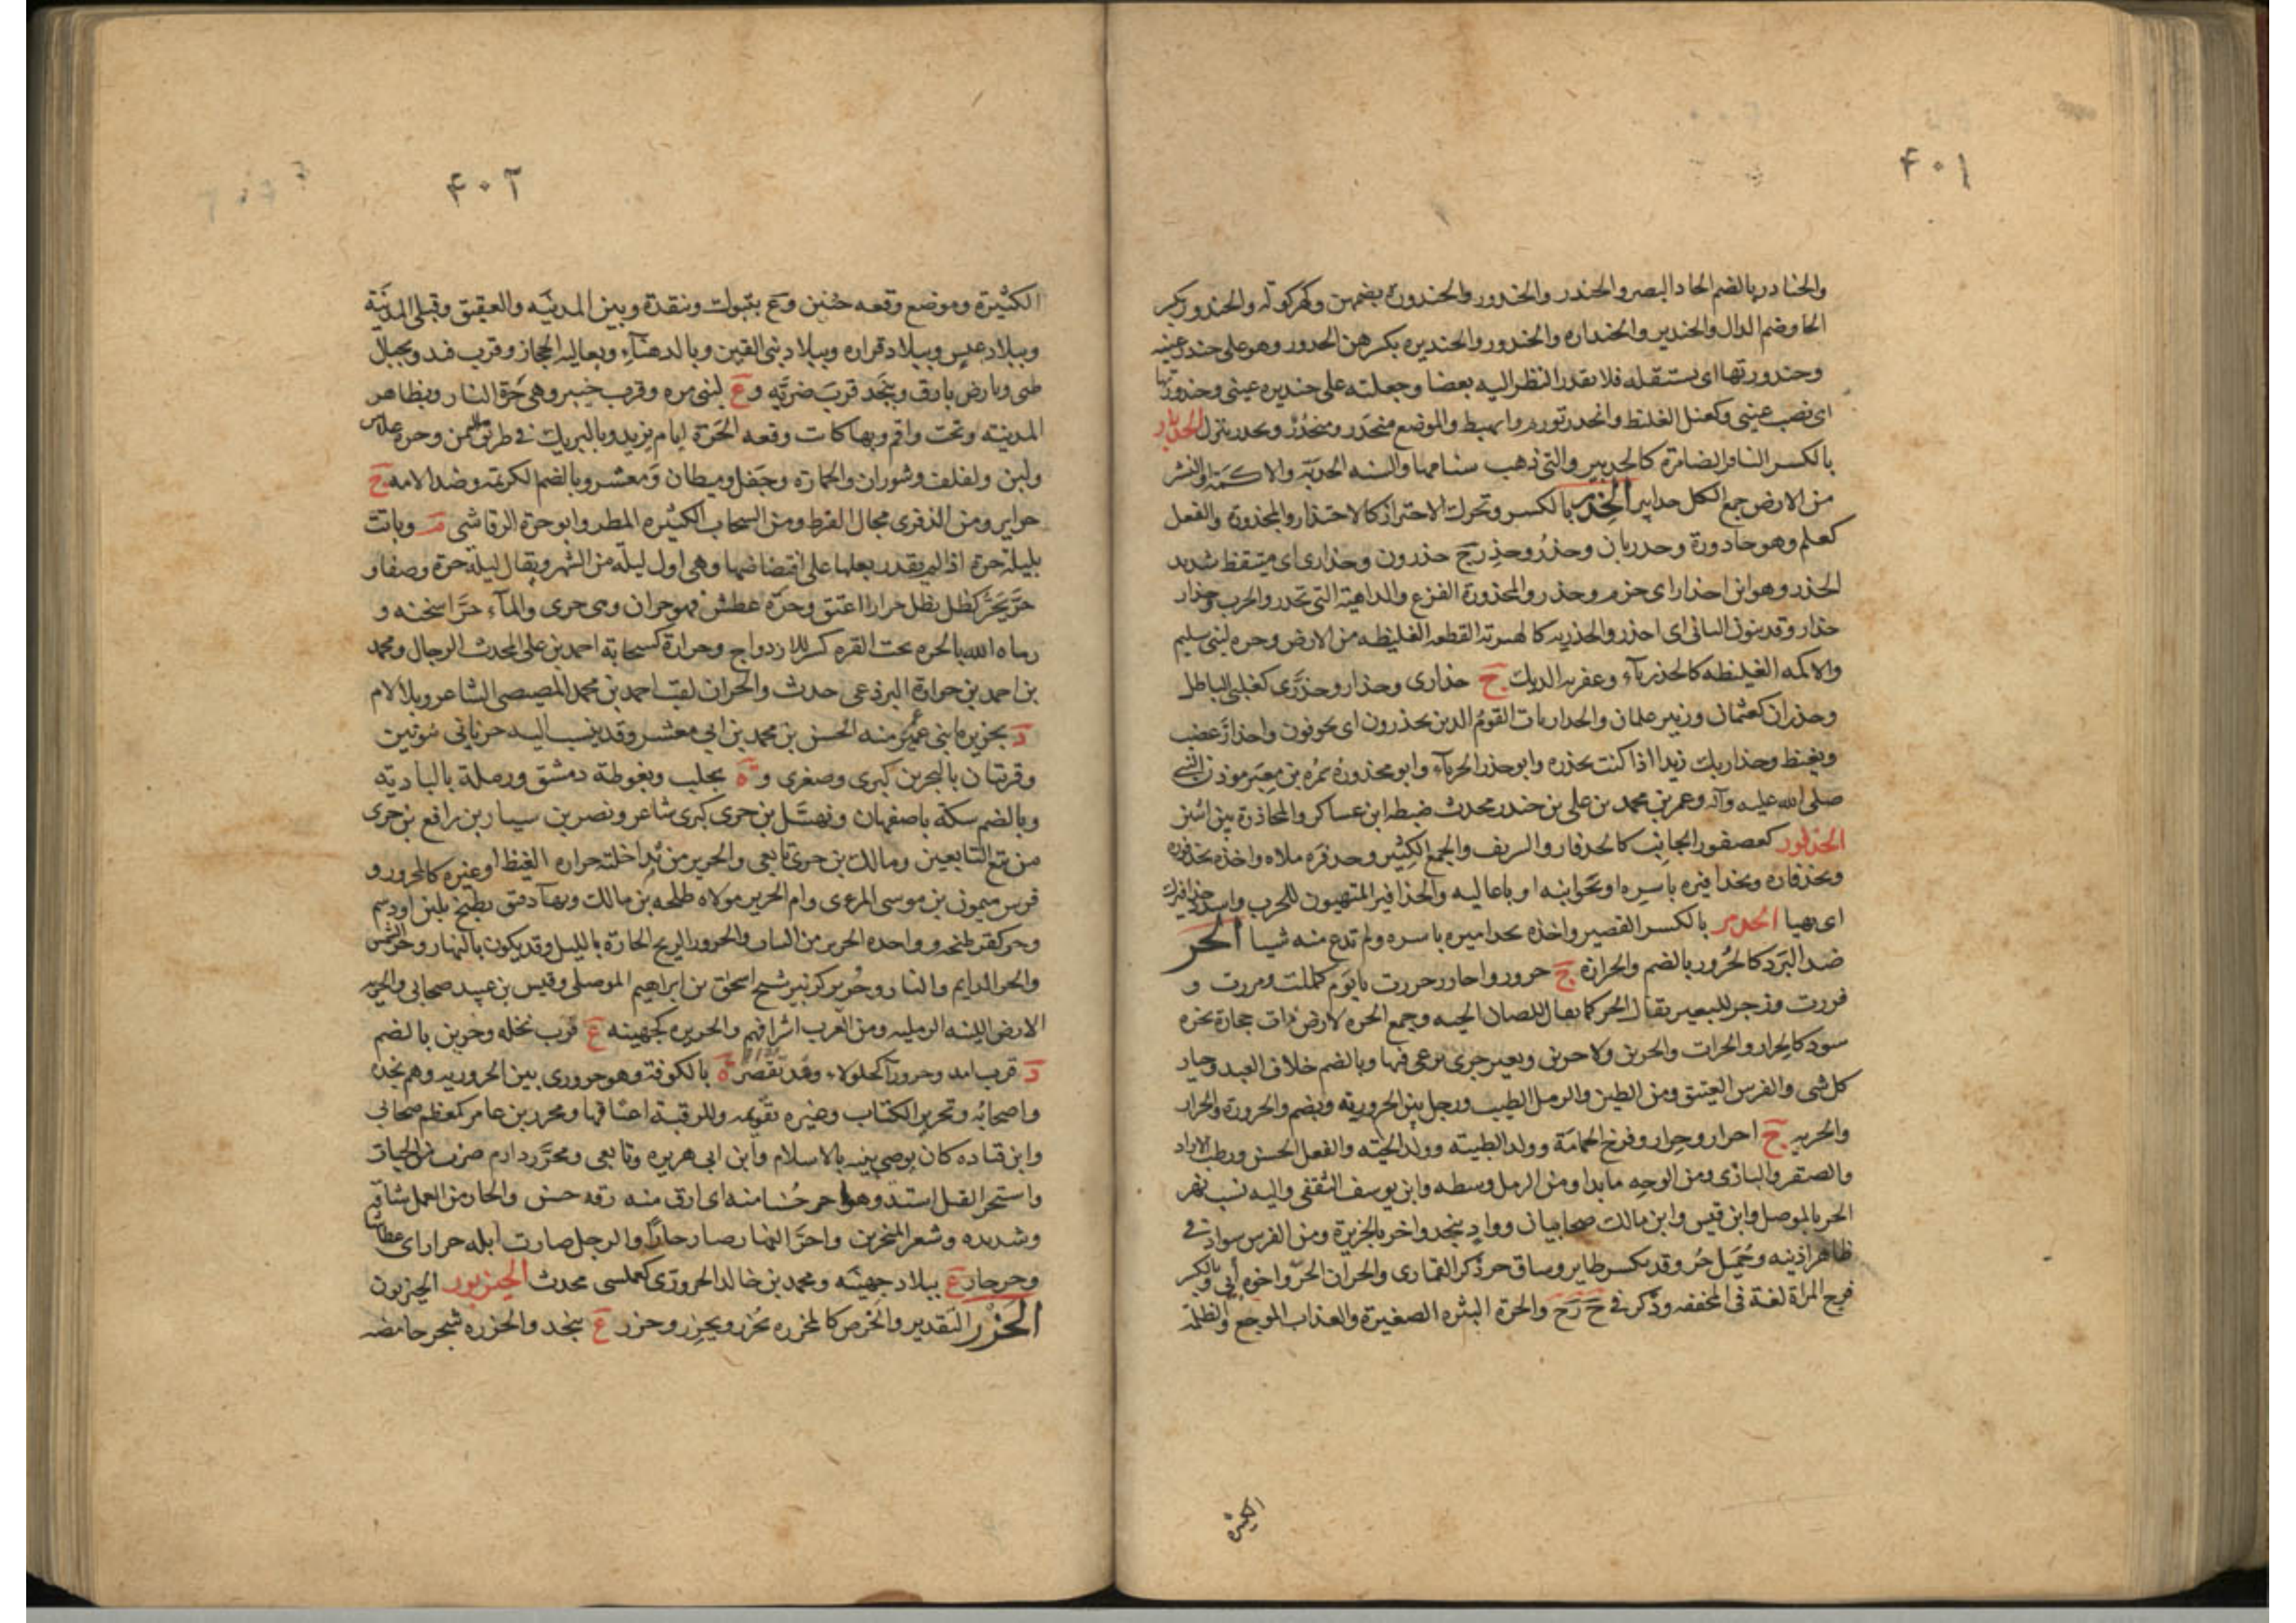 ۴۰۱
والحنادر بالضم الحاد البصر والحندر والحندور والحندورة بضمهن وكهركولة والحندور بكسر
الحا وضم الدال والحندير والحنداره والحندور والحنديره بكسرهن الحدور وهو على حندر عينه
وحندورتها اى يستثقله فلا يقدر النظر اليه بعضا وجعلته على حنديره عينى وحندورتها
اى نصب عينى وكعتل الغليظ وانحدر تورم وانهبط والموضع منحدر ومنحدر وتحدر تنزل الحدبار
بالكسر الناقة الضامرة كالحدبير والتى ذهب سنامها والسنه الجدبة والاكمة والنشز
من الارض جمع الكل حدابير الحذر بالكسر وتحرك الاحتراز كالاحتذار والمحذورة والفعل
كعلم وهو حاذورة وحذريان وحذر وحذر ج حذرون وحذارى اى متيقظ شديد
الحذر وهو ابن احذار اى حزم وحذر والمحذورة الفزع والداهية التى تحذر والحرب وحذار
حذار وقد ينون الثانى اى احذر والحذريه كالهبرية القطعه الغليظه من الارض وحره لبنى سليم
والاكمه الغليظه كالحذرياء وعفريه الديك ج حذارى وحذار وحذرى كغلبى الباطل
وحذران كعثمان وزبير علمان والحذاريات القوم الذين يحذرون اى يخوفون واحذار غضب
وتغيظ وحذاريك زيدا اذا كنت تحذره وابو حذر الحرباء وابو محذوره سمره بن معير موذن النبى
صلى الله عليه وآله وعمر بن محمد بن على بن حذر محدث ضبطه ابن عساكر والمحاذرة بين اثنين
الحذفور كعصفور الجانب كالحذفار والشريف والجمع الكثير وحذفره ملاه واخذه بحذفوره
وبحذفاره وبحذافيره باسره او بجوانبه او باعاليه والحذافير المتهيون للحرب واشدد حذافيرك
اى تهيا الحذمر بالكسر القصير واخذه بحذاميره باسره ولم تدع منه شيا الحر
ضد البرد كالحرور بالضم والحرارة ج حرور واحارر حررت يا يوم كمللت ومررت و
فررت وزجر للبعير يقال الحر كما يقال للضان الحيه وجمع الحره لارض ذات حجارة نخره
سود كالحرار والحرات والحرين والاحرين وبعير حرى يرعى فيها وبالضم خلاف العبد وخيار
كل شى والفرس العتيق ومن الطين والرمل الطيب ورجل بين الحرورية ويضم والحرورة والحرار
والحريه ج احرار وحرار وفرخ الحمامة وولد الظبية وولد الحية والفعل الحسن ورطب الازاد
والصقر والبازى ومن الوجه ما بدا ومن الرمل وسطه وابن يوسف الثقفى واليه نسب نهر
الحر بالموصل وابن قيس وابن مالك صحابيان وواد بنجد واخر بالجزيرة ومن الفرس سواد فى
ظاهر اذنيه وجميل حر وقد يكسر طاير وساق حر ذكر القمارى والحران الحر واخوه أبى وبالكسر
فرج المراة لغة فى المخففه وذكر فى ح ر ح والحرة البثره الصغيرة والعذاب الموجع والظلمة
الكثيره
۴۰۲
الكثيرة وموضع وقعه حنين وع بتبوك ونقدة وبين المدينه والعقيق وقبلى المدينة
وببلاد عبس وببلاد فزاره وببلاد بنى القين وبالدهناء وبعاليه الحجاز وقرب فيد وبجبال
طى وبارض بارق وبنجد قرب ضريه وع لبنى مره وقرب خيبر وهى حرة النار وبظاهر
المدينه وتحت واقم وبها كانت وقعه الحرة ايام يزيد وبالبريك فى طريق اليمن وحرة غلاس
ولبن ولفلف وشوران والحمارة وجفل وميطان ومعشر وبالضم الكريمة وضد الامه ج
حراير ومن الذفرى مجال القرط ومن السحاب الكثيره المطر وابو حرة الرقاشى م وباتت
بليلة حرة اذا لم يقدر بعلها على اقتضاضها وهى اول ليلة من الشهر ويقال ليلة حرة وصفا و
حر يحر كظل يظل حرارا اعتق وحرة عطش فهو حران وهى حرى والماء حرا اسخنه و
رماه الله بالحره تحت القره كسر للازدواج وحرارة كسحابة احمد بن على المحدث الرحال ومحمد
بن احمد بن حرارة البرذعى حدث والحران لقب احمد بن محمد المصيصى الشاعر وبلا لام
د بجزيره ابنى عمر منه الحسن بن محمد بن ابى معشر وقد ينسب اليه حرنانى بنونين
وقريتان بالبحرين كبرى وصغرى وة بحلب وبغوطة دمشق ورملة بالبادية
وبالضم سكة باصفهان ونهشل بن حرى كبرى شاعر ونصر بن سيار بن رافع بن حرى
من تبع التابعين ومالك بن حرى تابعى والحرير من تداخلته حراره الغيظ او غيره كالمحرور و
فرس ميمون بن موسى المرءى وام الحرير مولاه طلحه بن مالك وبهآ دقيق يطبخ بلبن او دسم
وحر كفر طبخه وواحده الحرير من الثياب والحرور الريح الحارة بالليل وقد يكون بالنهار وحر الشمس
والحر الدايم والنار وحرير كزبير شيخ اسحق بن ابراهيم الموصلى وقيس بن عبيد صحابى والحريه
الارض اللينه الرمليه ومن العرب اشرافهم والحريره كجهينه ع قرب نخله وحرين بالضم
د قرب امد وحرورآ كجلولاء وقد تقصر ة بالكوفة وهو حرورى بين الحروريه وهم نجده
واصحابه وتحرير الكتاب وغيره تقويمه وللرقبة اعتاقها ومحرر بن عامر كمعظم صحابى
وابن قتاده كان يوصى بنيه بالاسلام وابن ابى هريره وتابعى ومحرر دارم ضرب من الحيات
واستحر القتل اشتد وهو احر حسنا منه اى ارق منه رقه حسن والحار من العمل شاقه
وشديده وشعر المنخرين واحر النهار صار حارا والرجل صارت ابله حرارا اى عطاشا
وحرحار ع ببلاد جهينه ومحمد بن خالد الحرورى كعملسى محدث الحيزبور الحيزبون
الحزر التقدير والخرص كالمحزره يحزر ويحزر وحزر ع بنجد والحزره شجر حامضه